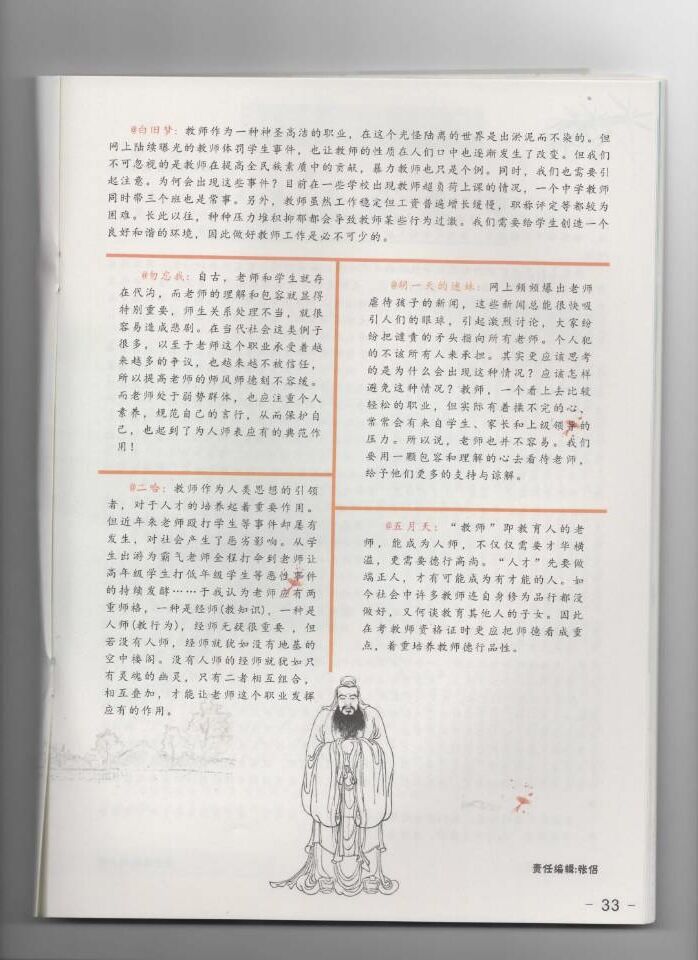 @白旧梦：教师作为一种神圣高洁的职业，在这个光怪陆离的世界是出淤泥而不染的。但
网上陆续曝光的教师体罚学生事件，也让教师的性质在人们口中也逐渐发生了改变。但我们
不可忽视的是教师在提高全民族素质中的贡献，暴力教师也只是个例。同时，我们也需要引
起注意。为何会出现这些事件？目前在一些学校出现教师超负荷上课的情况，一个中学教师
同时带三个班也是常事。另外，教师虽然工作稳定但工资普遍增长缓慢，职称评定等都较为
困难。长此以往，种种压力堆积抑郁都会导致教师某些行为过激。我们需要给学生创造一个
良好和谐的环境，因此做好教师工作是必不可少的。
@勿忘我：自古，老师和学生就存
在代沟，而老师的理解和包容就显得
特别重要，师生关系处理不当，就很
容易造成悲剧。在当代社会这类例子
很多，以至于老师这个职业承受着越
来越多的争议，也越来越不被信任，
所以提高老师的师风师德刻不容缓。
而老师处于弱势群体，也应注重个人
素养，规范自己的言行，从而保护自
己，也起到了为人师表应有的典范作
用！
@二哈：教师作为人类思想的引领
者，对于人才的培养起着重要作用。
但近年来老师殴打学生等事件却屡有
发生，对社会产生了恶劣影响。从学
生出游为霸气老师全程打伞到老师让
高年级学生打低年级学生等恶性事件
的持续发酵……于我认为老师应有两
重师格，一种是经师(教知识)，一种是
人师(教行为)，经师无疑很重要，但
若没有人师，经师就犹如没有地基的
空中楼阁。没有人师的经师就犹如只
有灵魂的幽灵，只有二者相互组合，
相互叠加，才能让老师这个职业发挥
应有的作用。
@胡一天的迷妹：网上频频爆出老师
虐待孩子的新闻，这些新闻总能很快吸
引人们的眼球，引起激烈讨论，大家纷
纷把谴责的矛头指向所有老师。个人犯
的不该所有人来承担。其实更应该思考
的是为什么会出现这种情况？应该怎样
避免这种情况？教师，一个看上去比较
轻松的职业，但实际有着操不完的心、
常常会有来自学生、家长和上级领导的
压力。所以说，老师也并不容易。我们
要用一颗包容和理解的心去看待老师，
给予他们更多的支持与谅解。
@五月天：“教师”即教育人的老
师，能成为人师，不仅仅需要才华横
溢，更需要德行高尚。“人才”先要做
端正人，才有可能成为有才能的人。如
今社会中许多教师连自身修为品行都没
做好，又何谈教育其他人的子女。因此
在考教师资格证时更应把师德看成重
点，着重培养教师德行品性。
责任编辑:张侣
- 33 -